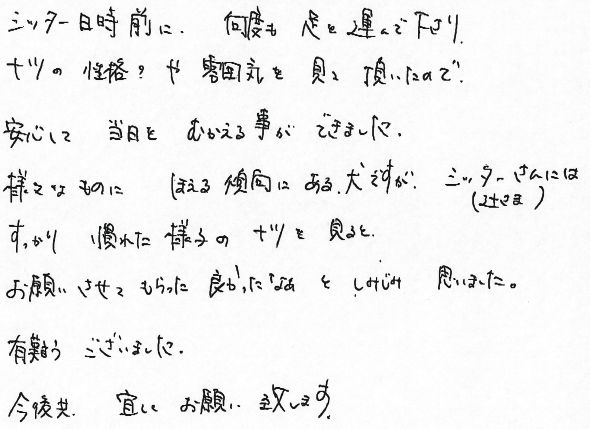 シッター日時前に、何度も足を運んで下さり、
ナツの性格?や雰囲気を見て頂いたので、
安心して当日をむかえる事ができました。
様々なものにほえる傾向にある犬ですが、シッターさんには
すっかり慣れた様子のナツを見ると、
お願いさせてもらった良かったなあとしみじみ思いました。
有難うございました。
今後共、宜しくお願い致します。